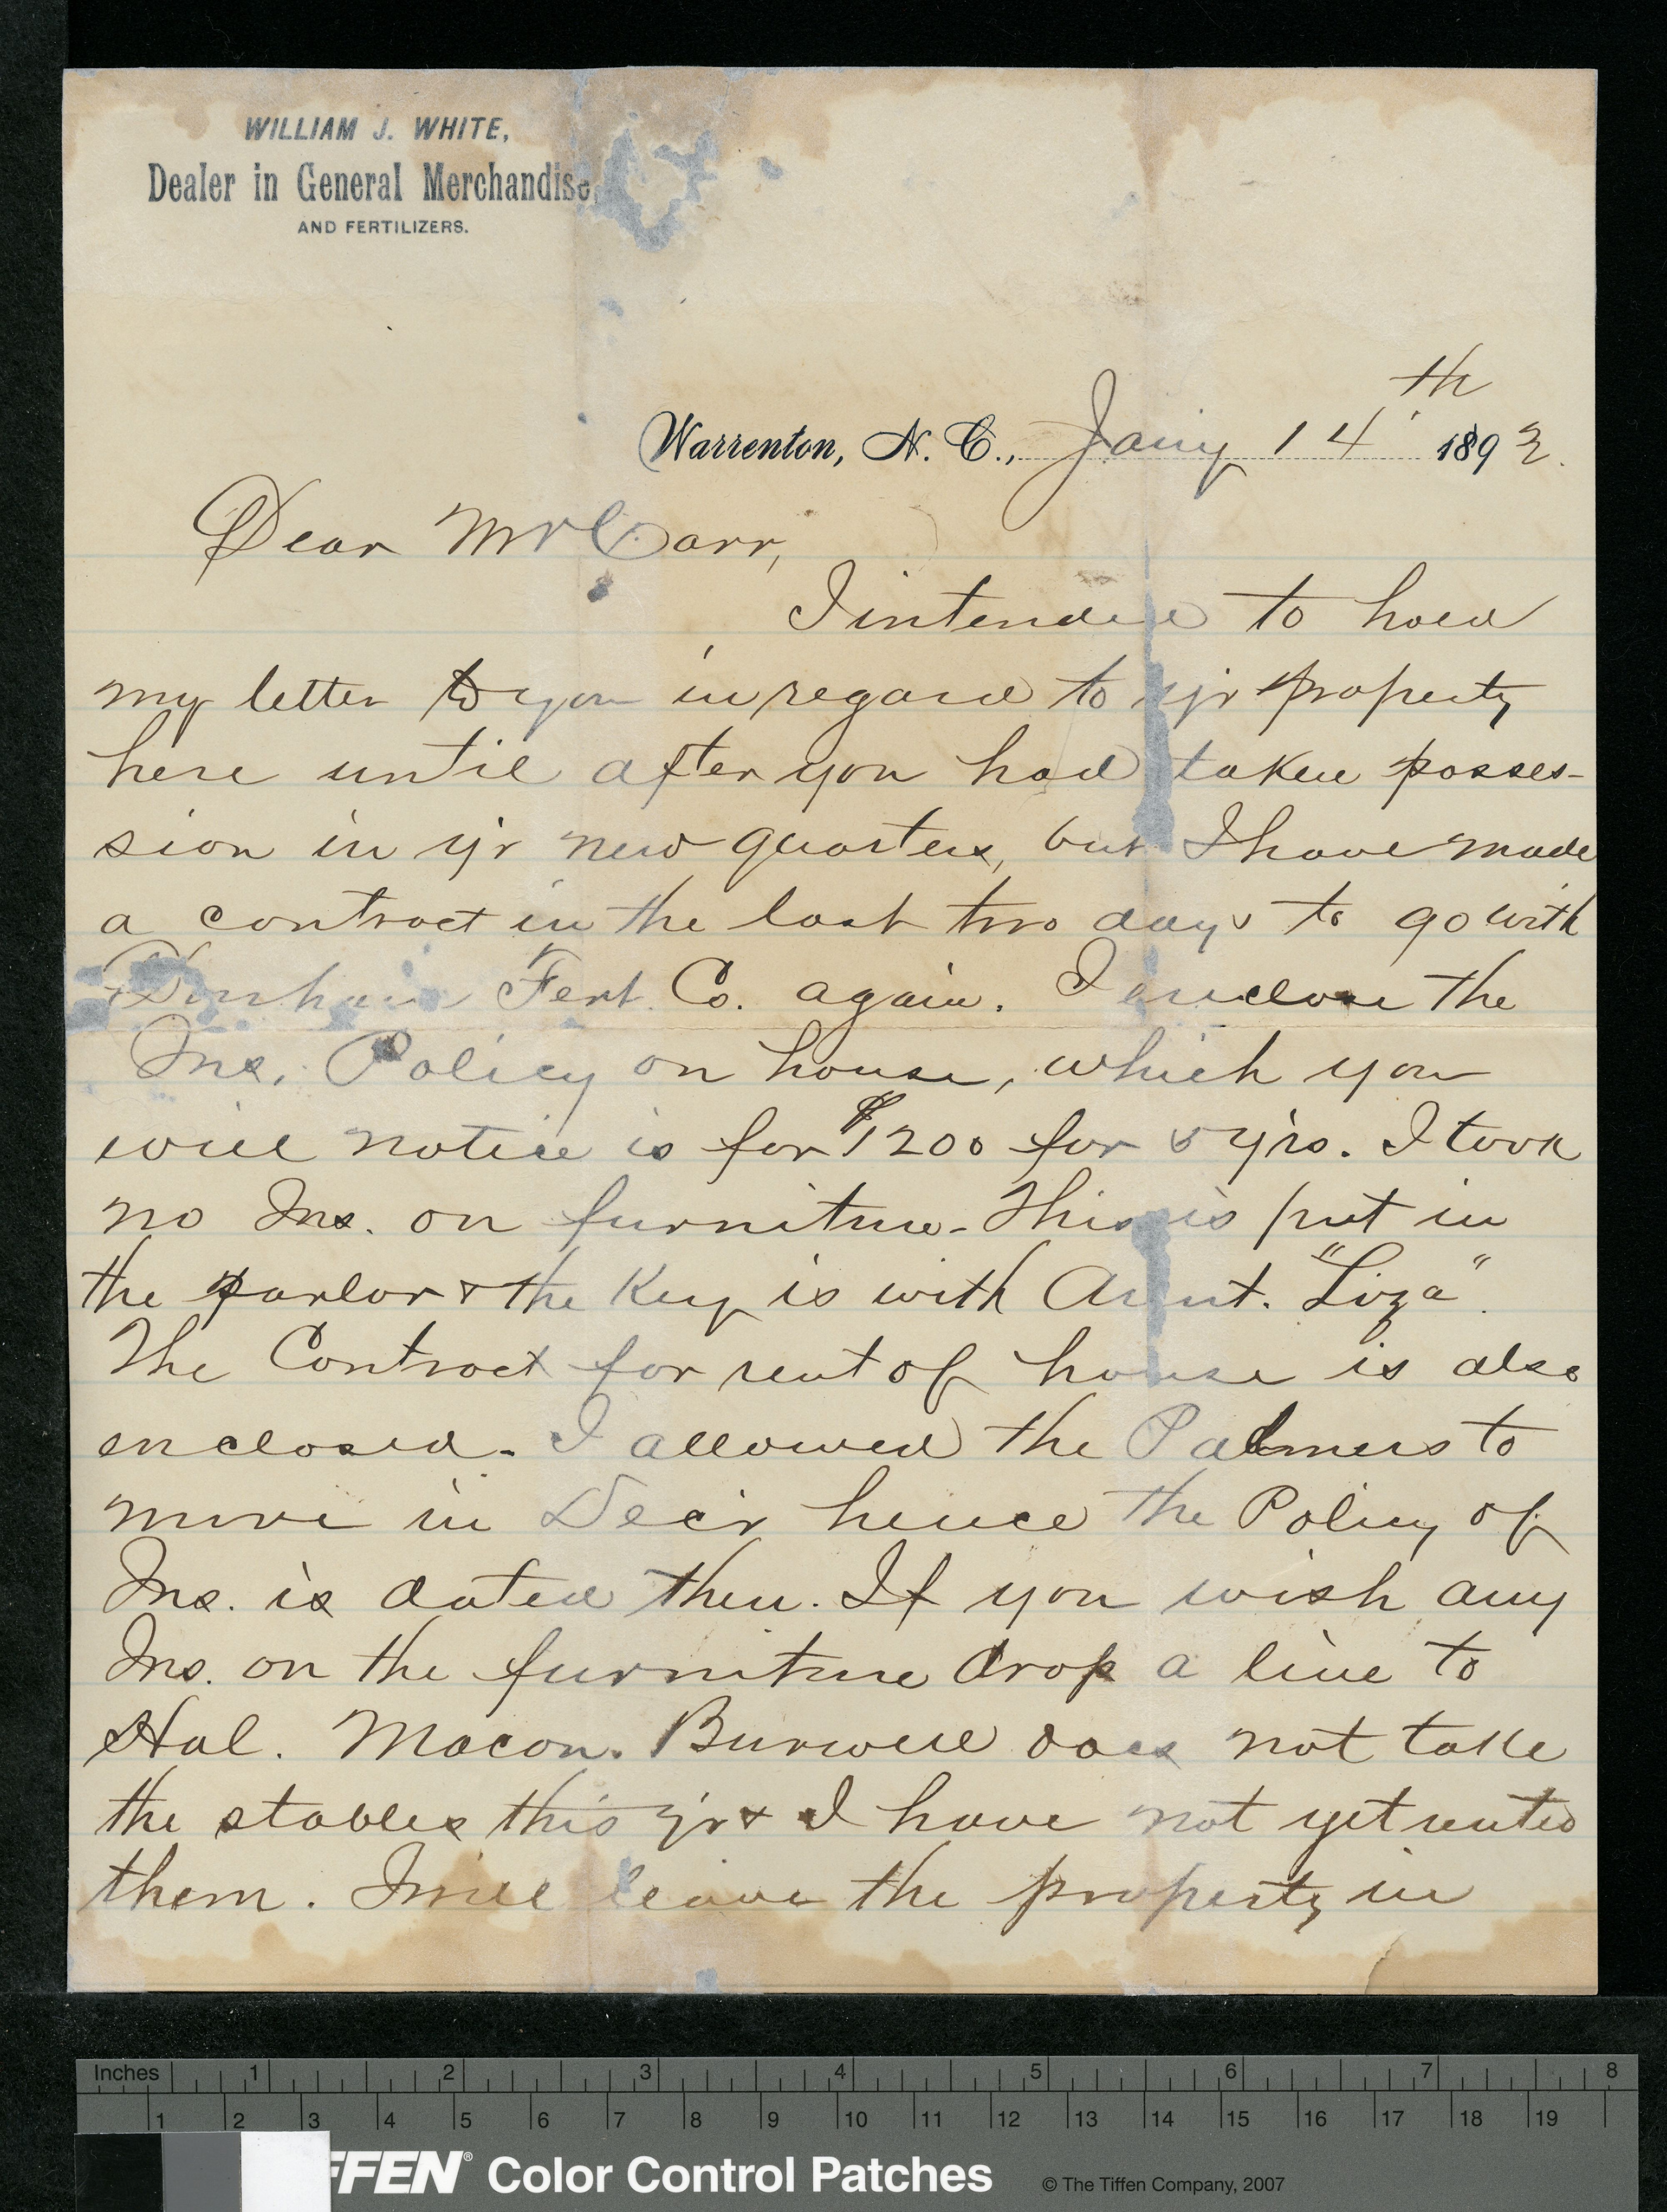 WILLIAM J. WHITE,
Dealer in General Merchandise,
AND FERTILIZERS.
th
Warrenton, N. C., Jany 14 1892.
Dear Mr Carr,
I intended to hold
my letter to you in regard to yr property
here until after you had taken posses-
sion in yr new quarters, but I have made
a contract in the last two days to go with
Durham Fert. Co. again. I enclose the
Ins. Policy on house, which you
will notice is for $1200 for 5 yrs. I took
no Ins. on furniture - This is put in
the parlor & the key is with Aunt. "Liza".
The Contract for rent of house is also
enclosed - I allowed the Palmers to
move in Decr hence the Policy of
Ins. is dated then. If you wish any
Ins. on the furniture drop a line to
Hal. Macon. Burwell does not take
the stables this yr & I have not yet rented
them. I will leave the property in
Inches 1 2 3 4 5 6 7 8
1 2 3 4 5 6 7 8 9 10 11 12 13 14 15 16 17 18 19
FFEN® Color Control Patches © The Tiffen Company, 2007